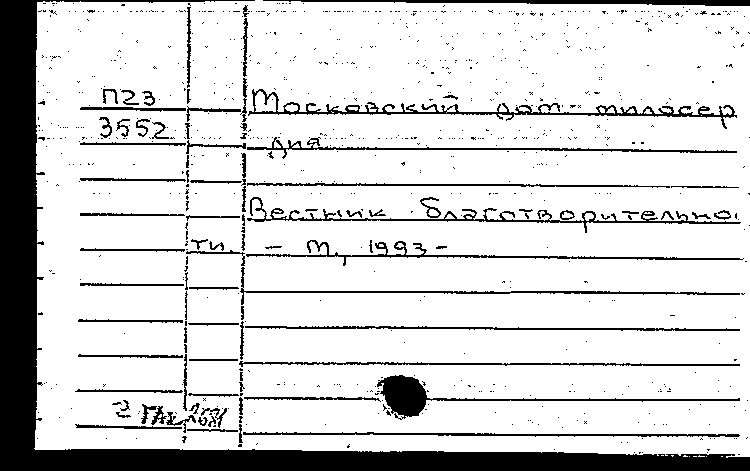 П23 Московский дом милосер
3552 дия
Вестник благотворительно
ти. – М., 1993 –
2